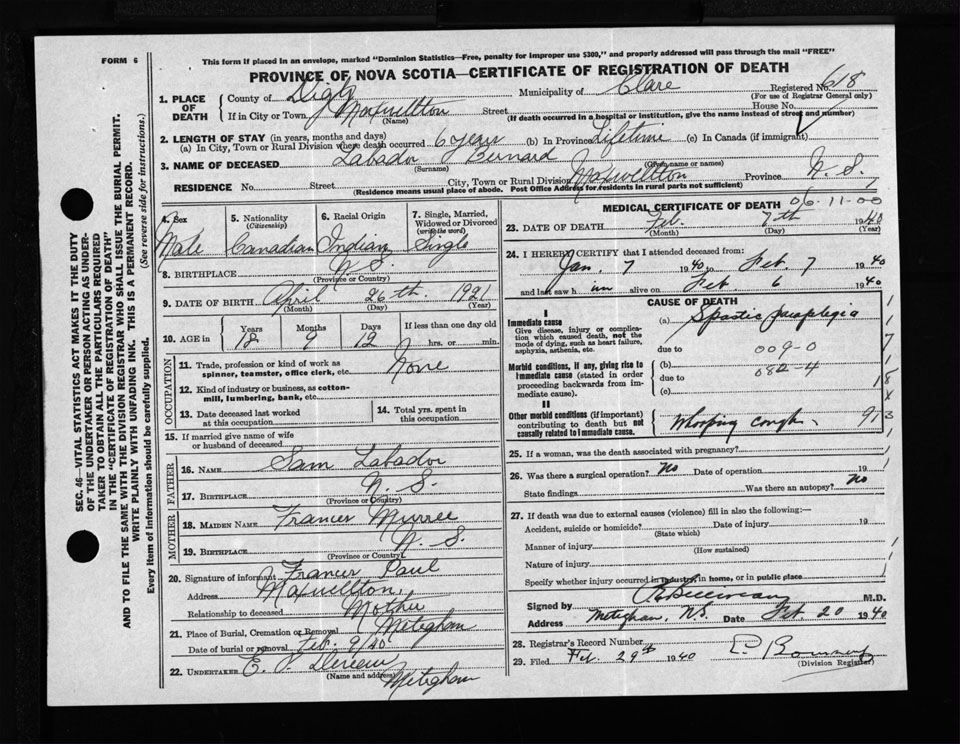 FORM 6
This form if placed in an envelope, marked "Dominion Statistics—Free, penalty for improper use $300," and properly addressed will pass through the mail "FREE"
PROVINCE OF NOVA SCOTIA—CERTIFICATE OF REGISTRATION OF DEATH
Registered No. 618
(For use of Registrar General only)
1. PLACE OF DEATH
County of Digby Municipality of Clare
If in City or Town Maxwellton Street House No.
(Name) (If death occurred in a hospital or institution, give the name instead of street and number)
2. LENGTH OF STAY (in years, months and days)
(a) In City, Town or Rural Division where death occurred 6 years (b) In Province Lifetime (c) In Canada (if immigrant)
3. NAME OF DECEASED Labador Bernard
(Surname) (Given name or names)
RESIDENCE No. Street City, Town or Rural Division Maxwellton Province N. S.
(Residence means usual place of abode. Post Office Address for residents in rural parts not sufficient)
4. Sex Male
5. Nationality (Citizenship) Canadian
6. Racial Origin Indian
7. Single, Married, Widowed or Divorced (write the word) Single
8. BIRTHPLACE N. S.
(Province or Country)
9. DATE OF BIRTH April 26th. 1921
(Month) (Day) (Year)
10. AGE in Years 18 Months 9 Days 12 If less than one day old hrs. or min.
OCCUPATION
11. Trade, profession or kind of work as spinner, teamster, office clerk, etc. None
12. Kind of industry or business, as cotton-mill, lumbering, bank, etc.
13. Date deceased last worked at this occupation
14. Total yrs. spent in this occupation
15. If married give name of wife or husband of deceased
FATHER
16. NAME Sam Labador
17. BIRTHPLACE N. S.
(Province or Country)
MOTHER
18. MAIDEN NAME Frances
19. BIRTHPLACE N. S.
(Province or Country)
20. Signature of informant Frances Paul
Address Maxwellton,
Relationship to deceased Mother
21. Place of Burial, Cremation or Removal Meteghan
Date of burial or removal Feb. 9/40
22. UNDERTAKER E.
(Name and address) Meteghan
MEDICAL CERTIFICATE OF DEATH 06-11-00
23. DATE OF DEATH Feb. 7th 1940
(Month) (Day) (Year)
24. I HEREBY CERTIFY that I attended deceased from:
Jan. 7 1940 to Feb. 7 1940
and last saw him alive on Feb. 6 1940
CAUSE OF DEATH
I
Immediate cause
Give disease, injury or complication which caused death, not the mode of dying, such as heart failure, asphyxia, asthenia, etc.
(a) Spastic paraplegia
due to 009-0
Morbid conditions, if any, giving rise to immediate cause (stated in order proceeding backwards from immediate cause).
(b) 082-4
due to
(c)
II
Other morbid conditions (if important) contributing to death but not causally related to immediate cause.
Whooping cough 9
25. If a woman, was the death associated with pregnancy?
26. Was there a surgical operation? No Date of operation 19
State findings Was there an autopsy? No
27. If death was due to external causes (violence) fill in also the following:—
Accident, suicide or homicide? Date of injury 19
(State which)
Manner of injury
(How sustained)
Nature of injury
Specify whether injury occurred in industry, in home, or in public place
Signed by M.D.
Address Meteghan, N.S. Date Feb. 20 1940
28. Registrar's Record Number
29. Filed Feb. 29th 1940
(Division Registrar)
SEC. 46—VITAL STATISTICS ACT MAKES IT THE DUTY
OF THE UNDERTAKER OR PERSON ACTING AS UNDER-
TAKER TO OBTAIN ALL THE PARTICULARS REQUIRED
IN THE "CERTIFICATE OF REGISTRATION OF DEATH"
AND TO FILE THE SAME WITH THE DIVISION REGISTRAR WHO SHALL ISSUE THE BURIAL PERMIT.
WRITE PLAINLY WITH UNFADING INK. THIS IS A PERMANENT RECORD.
Every item of information should be carefully supplied. (See reverse side for instructions.)